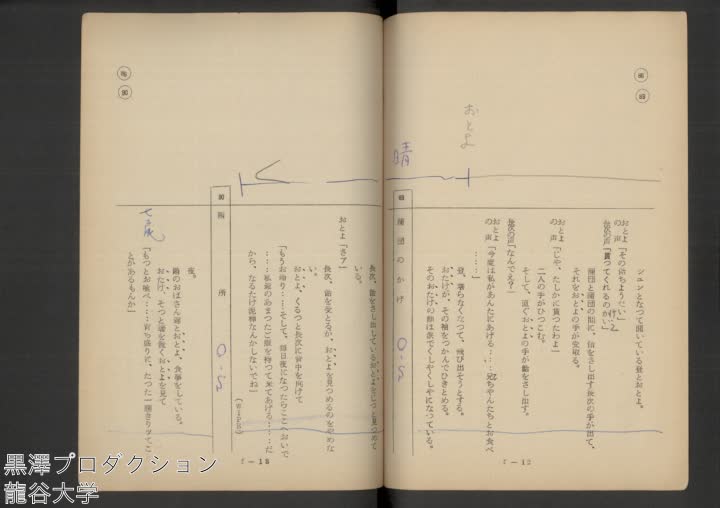 おとよ
晴
シユンとなつて聞いている登とおとよ。
おとよの声「その飴ちようだい」
長次の声「貰つてくれるのかい」
蒲団と蒲団の間に、飴をさし出す長次の手が出て、
それをおとよの手が受取る。
おとよの声「じや、たしかに貰つたわよ」
二人の手がひつこむ。
そして、直ぐおとよの手が飴をさし出す。
長次の声「なんでえ？」
おとよの声「今度は私があんたにあげる……兄ちやんたちとお食べ
……」
登、堪らなくなつて、飛び出そうとする。
おたけが、その袖をつかんでひきとめる。
そのおたけの顔は涙でくしやくしやになつている。
蒲団のかげ
0・S
7－12
長次、飴をさし出しているおとよをじつと見つめて
いる。
おとよ「さア」
長次、飴を受とるが、おとよを見つめるのをやめな
い。
おとよ、くるつと長次に背中を向けて
「もうお帰り……そして、毎日夜になつたらここへおいで
……私のあまつたご飯を持つて来てあげる……だ
から、なるたけ泥棒なんかしないでね」
(WIPE)
台所
0・S
七歳
夜。
飴のおばさん達とおとよ、食事をしている。
おたけ、そつと箸を置くおとよを見て
「もつとお喰べ……育ち盛りに、たつた一膳きりつてこ
とがあるもんか」
7－13
黒澤プロダクション
龍谷大学